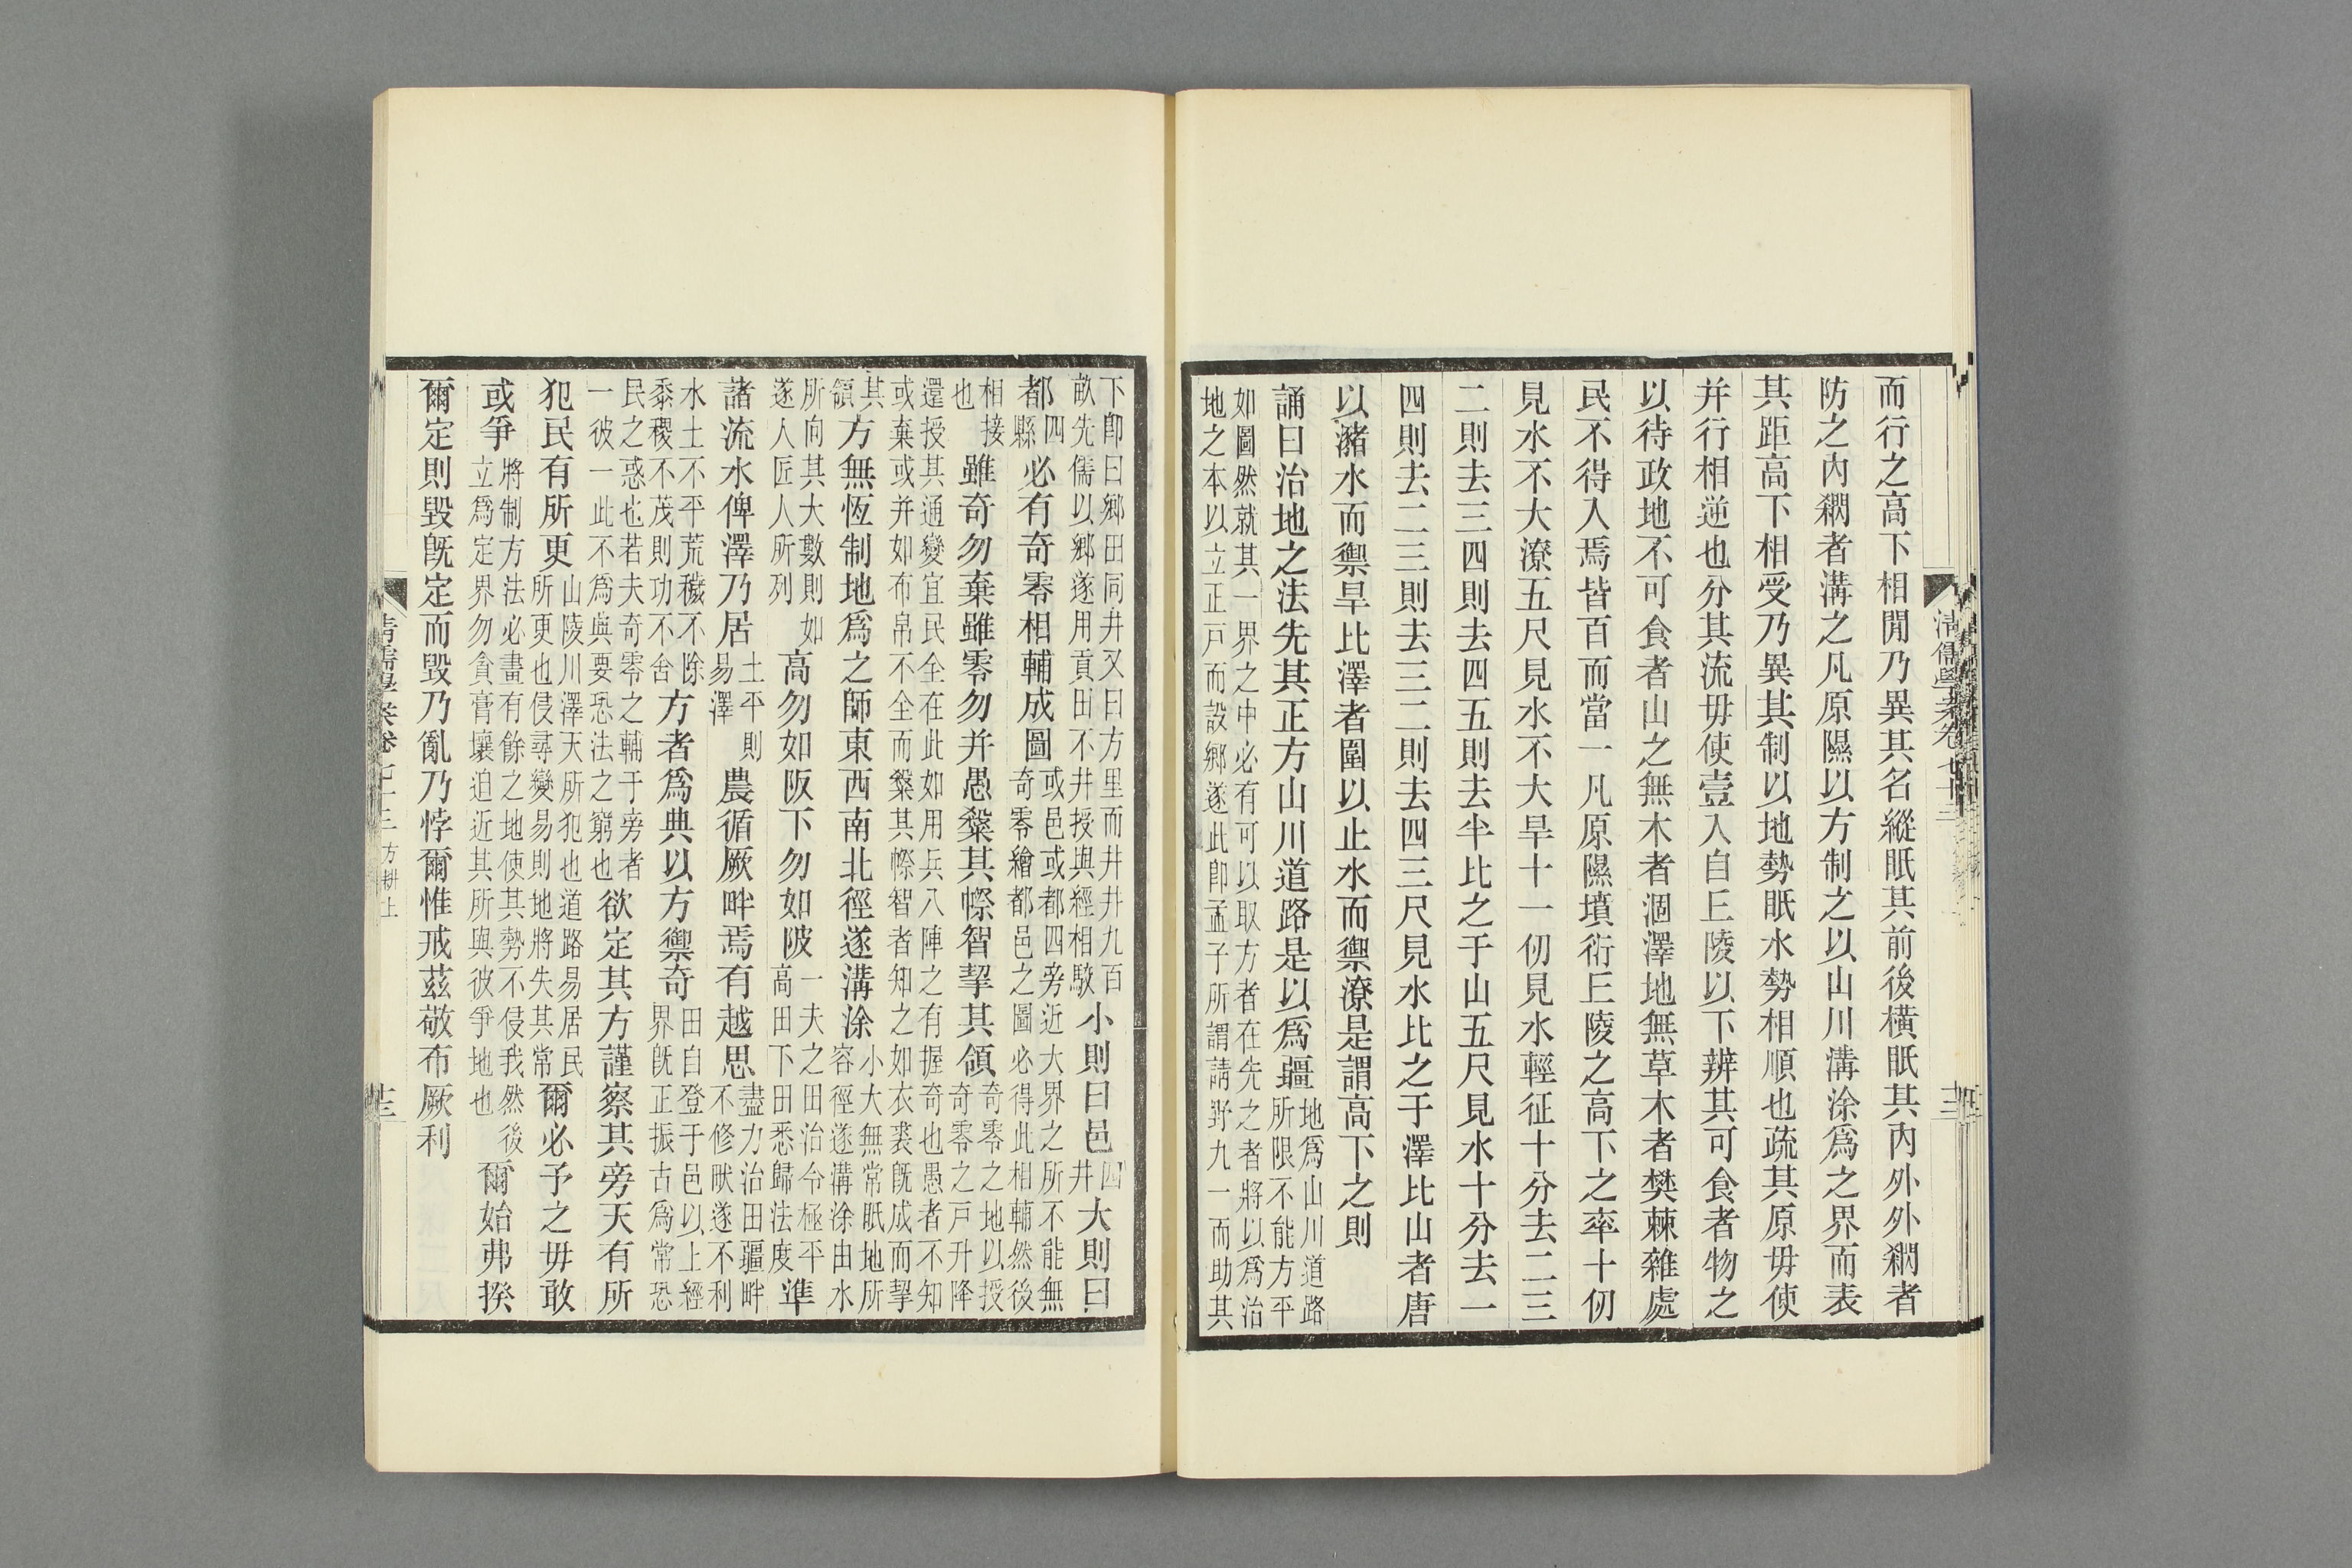 而行之高下相閒乃異其名縱眂其前後橫眂其內外外糊者
防之內糊者溝之凡原隰以方制之以山川溝涂爲之界而表
其距高下相受乃異其制以地勢眂水勢相順也疏其原毋使
并行相逆也分其流毋使壹入自丘陵以下辨其可食者物之
以待政地不可食者山之無木者涸澤地無草木者樊棘雜處
民不得入焉皆百而當一凡原隰墳衍丘陵之高下之率十仞
見水不大潦五尺見水不大旱十一仞見水輕征十分去二三
二則去三四則去四五則去半比之于山五尺見水十分去一
四則去二三則去三二則去四三尺見水比之于澤比山者唐
以瀦水而禦旱比澤者圍以止水而禦潦是謂高下之則
誦曰治地之法先其正方山川道路是以爲疆地爲山川道路
所限不能方平
如圖然就其一界之中必有可以取方者在先之者將以爲治
地之本以立正戸而設鄉遂此卽孟子所謂請野九一而助其
下卽曰鄉田同井又曰方里而井井九百
畝先儒以鄉遂用貢田不井授與經相駮小則曰邑四
井大則曰
都四
縣必有奇零相輔成圖或邑或都四旁近大界之所不能無
奇零繪都邑之圖必得此相輔然後
相接
也雖奇勿棄雖零勿并愚鏧其幣智挈其領奇零之地以授
奇零之戸升降
還授其通變宜民全在此如用兵八陣之有握奇也愚者不知
或棄或并如布帛不全而鏧其幣智者知之如衣裘旣成而挈
其
領方無恆制地爲之師東西南北徑遂溝涂小大無常眂地所
容徑遂溝涂由水
所向其大數則如
遂人匠人所列高勿如阪下勿如陂一夫之田治令極平
高田下田悉歸法度準
諸流水俾澤乃居土平則
易澤農循厥畔焉有越思盡力治田疆畔
不修畎遂不利
水土不平荒穢不除
黍稷不茂則功不舍方者爲典以方禦奇田自登于邑以上經
界旣正振古爲常恐
民之惑也若夫奇零之輔于旁者
一彼一此不爲典要恐法之窮也欲定其方謹察其旁天有所
犯民有所更山陵川澤天所犯也道路易居民
所更也侵尋變易則地將失其常爾必予之毋敢
或爭將制方法必畫有餘之地使其勢不侵我然後
立爲定界勿貪膏壤迫近其所與彼爭地也爾始弗揆
爾定則毀旣定而毀乃亂乃悖爾惟戒茲敬布厥利